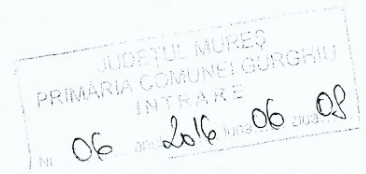 JUDEŢUL MUREŞ
PRIMĂRIA COMUNEI GURGHIU
INTRARE
Nr. 06 anul 2016 luna 06 ziua 08